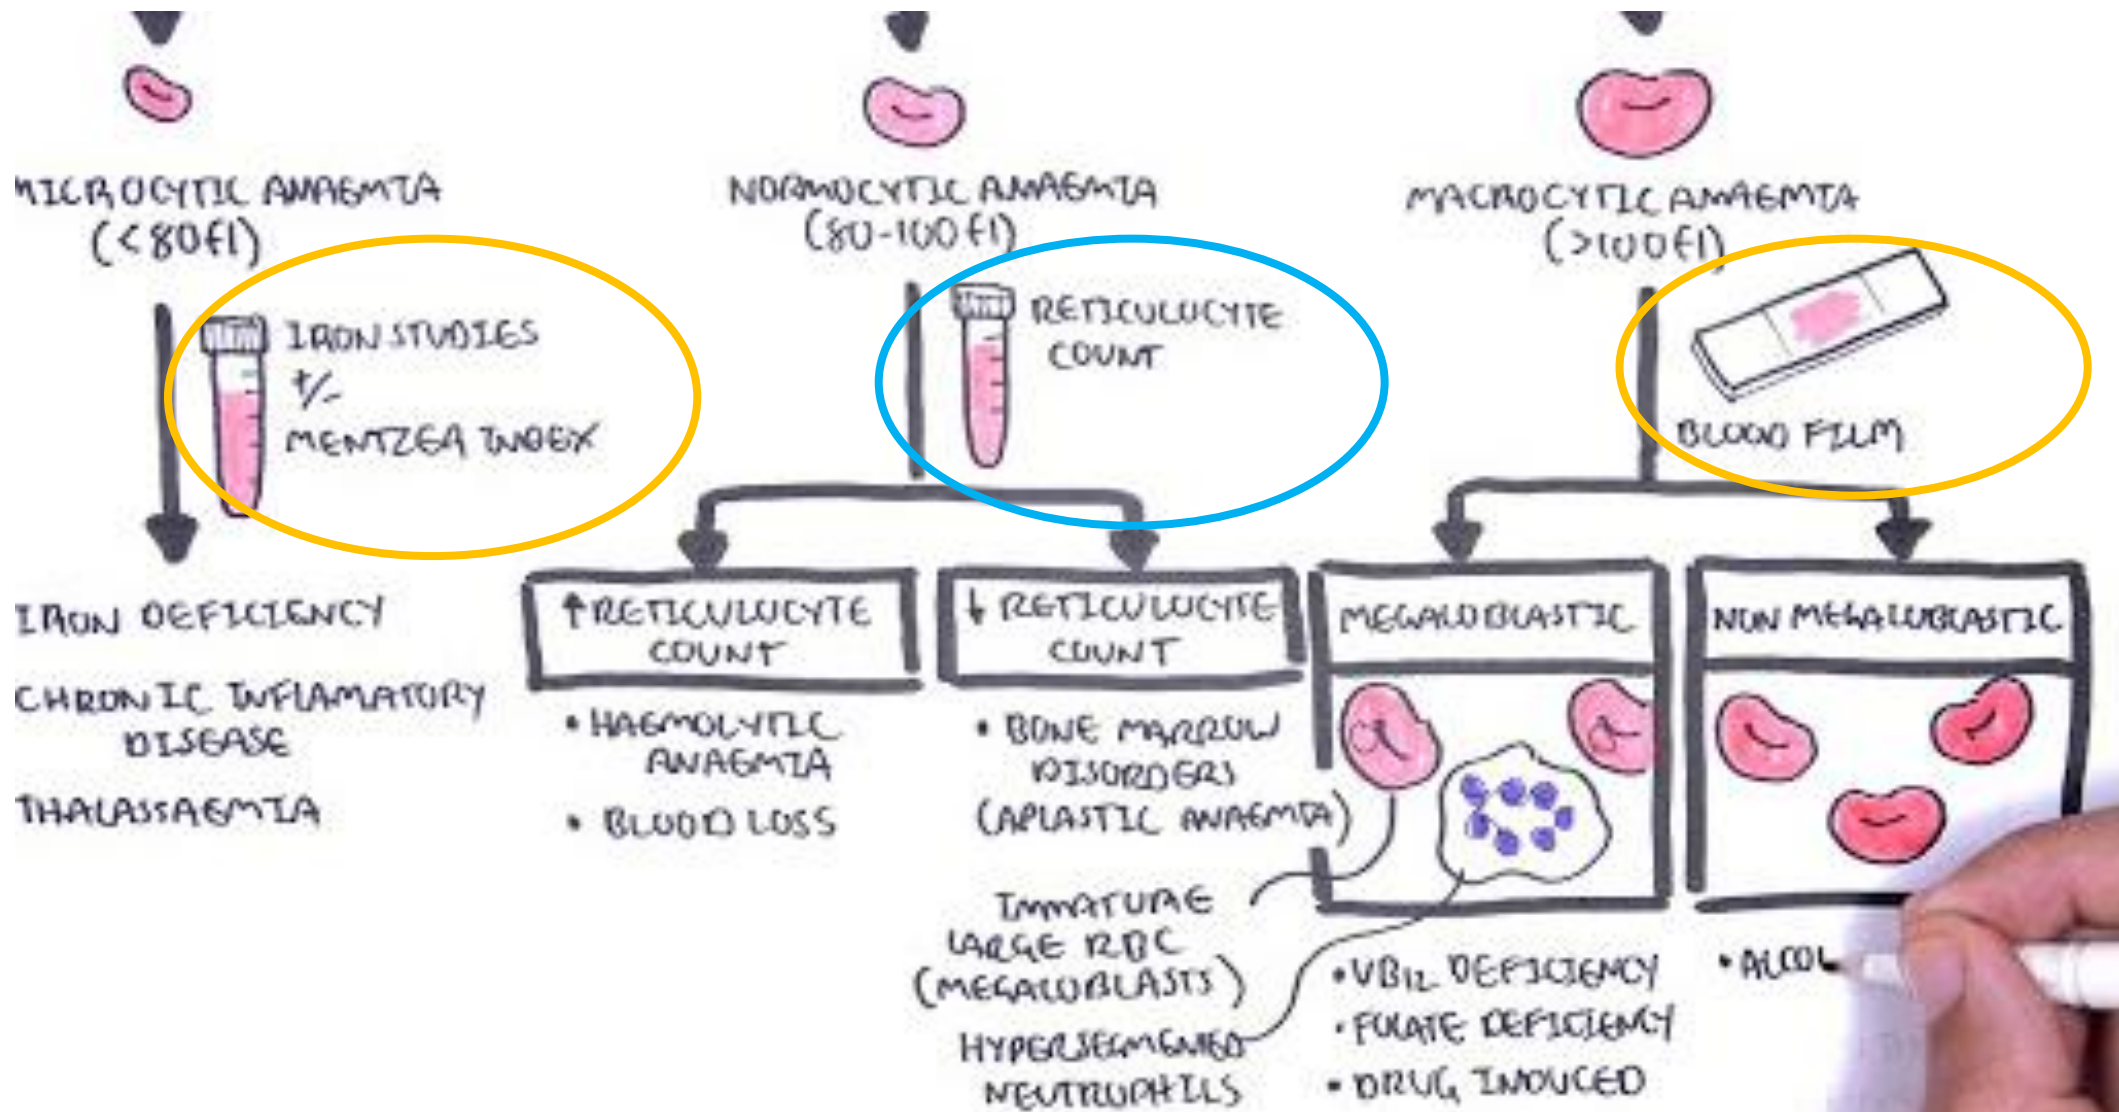 MICROCYTIC ANAEMIA
(<80fl)
IRON STUDIES
+/-
MENTZER INDEX
IRON DEFICIENCY
CHRONIC INFLAMATORY
DISEASE
THALASSAEMIA
NORMOCYTIC ANAEMIA
(80-100fl)
RETICULOCYTE
COUNT
↑ RETICULOCYTE
COUNT
• HAEMOLYTIC
ANAEMIA
• BLOOD LOSS
↓ RETICULOCYTE
COUNT
• BONE MARROW
DISORDERS
(APLASTIC ANAEMIA)
MACROCYTIC ANAEMIA
(>100fl)
BLOOD FILM
MEGALOBLASTIC
IMMATURE
LARGE RBC
(MEGALOBLASTS)
HYPERSEGMENTED
NEUTROPHILS
• VB12 DEFICIENCY
• FOLATE DEFICIENCY
• DRUG INDUCED
NON MEGALOBLASTIC
• ALCOL